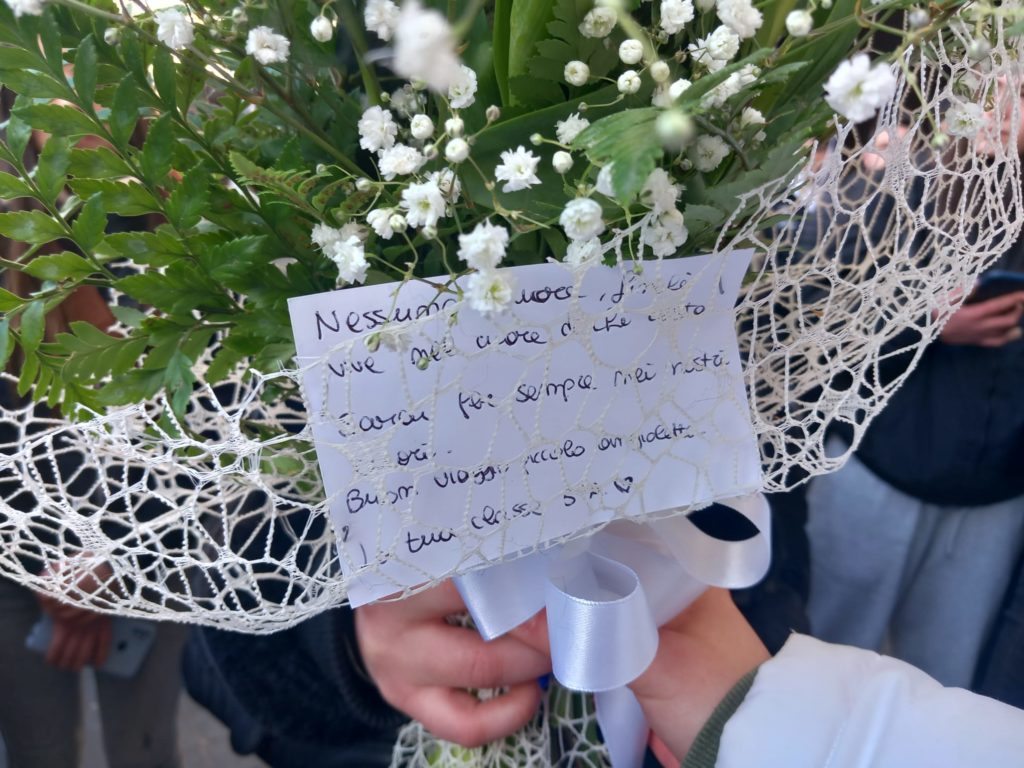 Nessuno muore, finché
vive nel cuore di chi resta
Sarai per sempre nei nostri
cuori.
Buon viaggio piccolo angioletto.
La tua classe 5A ♡